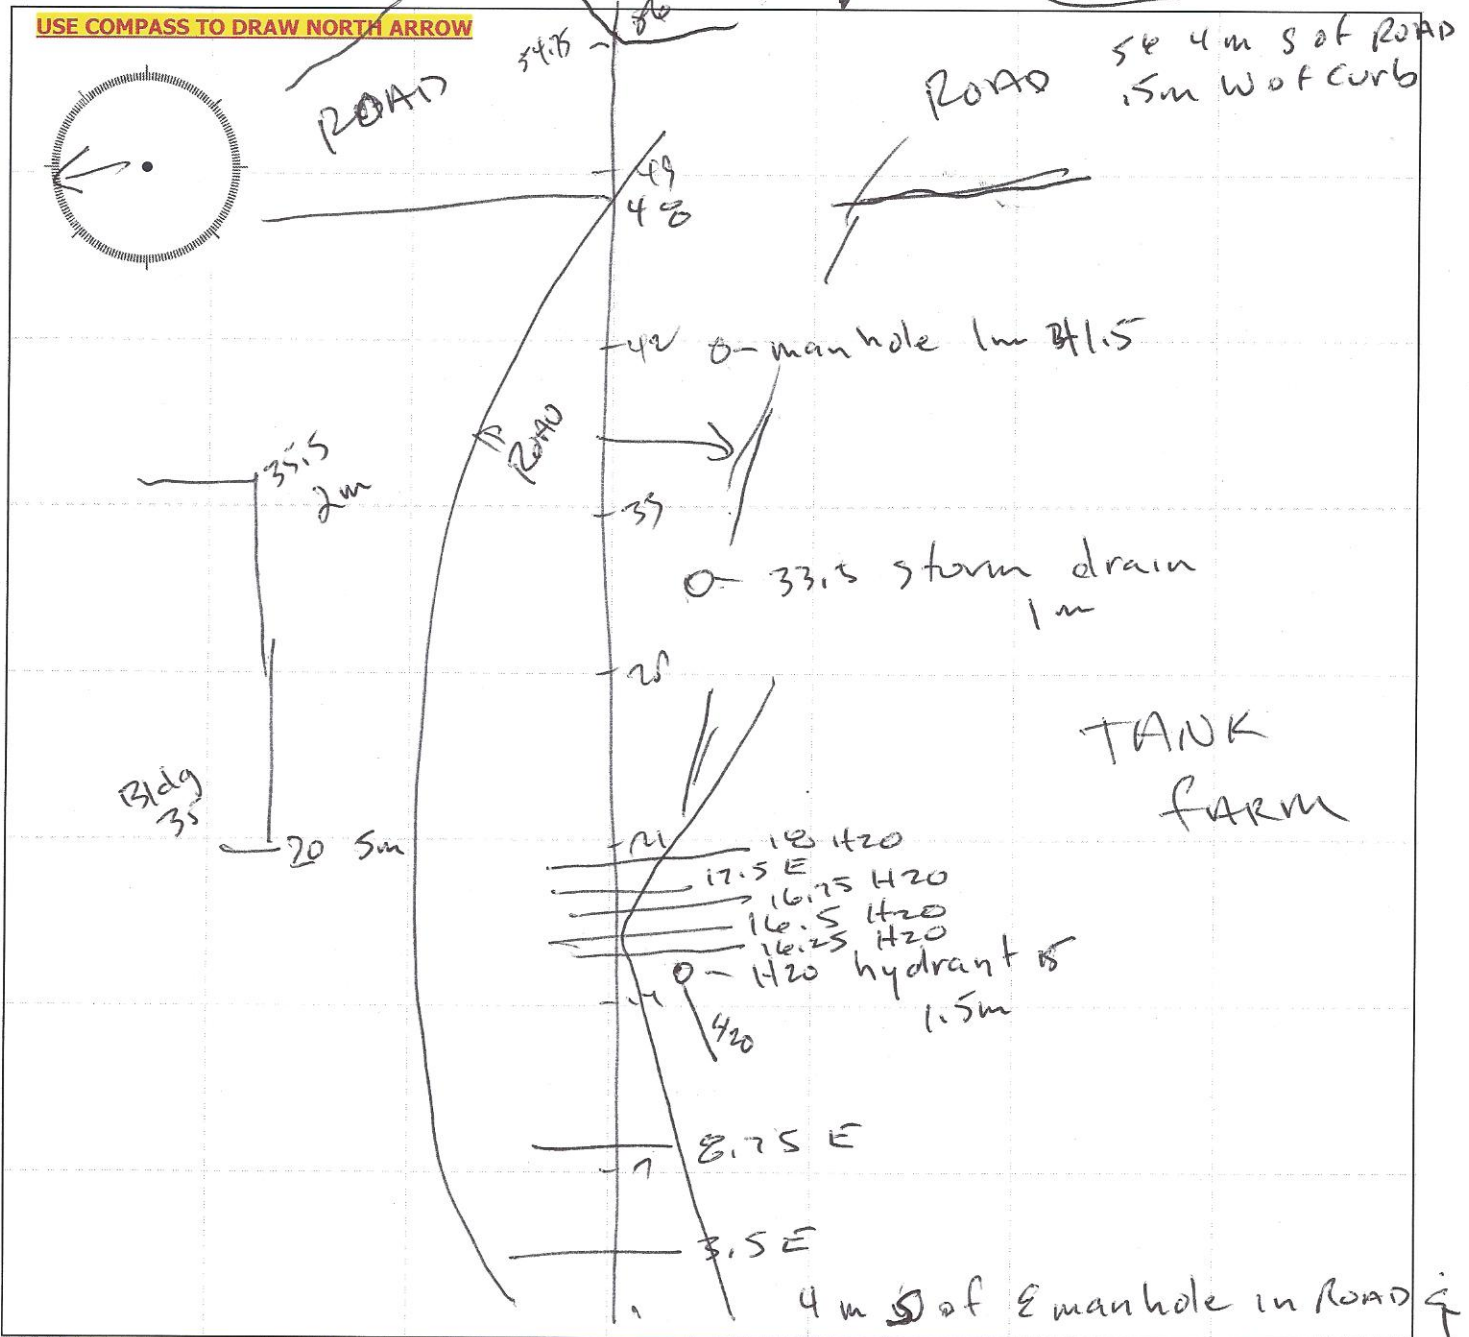 USE COMPASS TO DRAW NORTH ARROW
86
54.75
54 4m S of ROAD
.5m W of Curb
ROAD
ROAD
49
48
42 O- manhole 1m 41.5
ROAD
35.5
2m
35
O- 33.5 storm drain
1m
28
TANK
FARM
Bldg
35
20 5m
21
18 H2O
17.5 E
16.75 H2O
16.5 H2O
16.25 H2O
O- H2O hydrant 15
1.5m
14
H20
8.75 E
7
3.5 E
4 m S of E manhole in ROAD